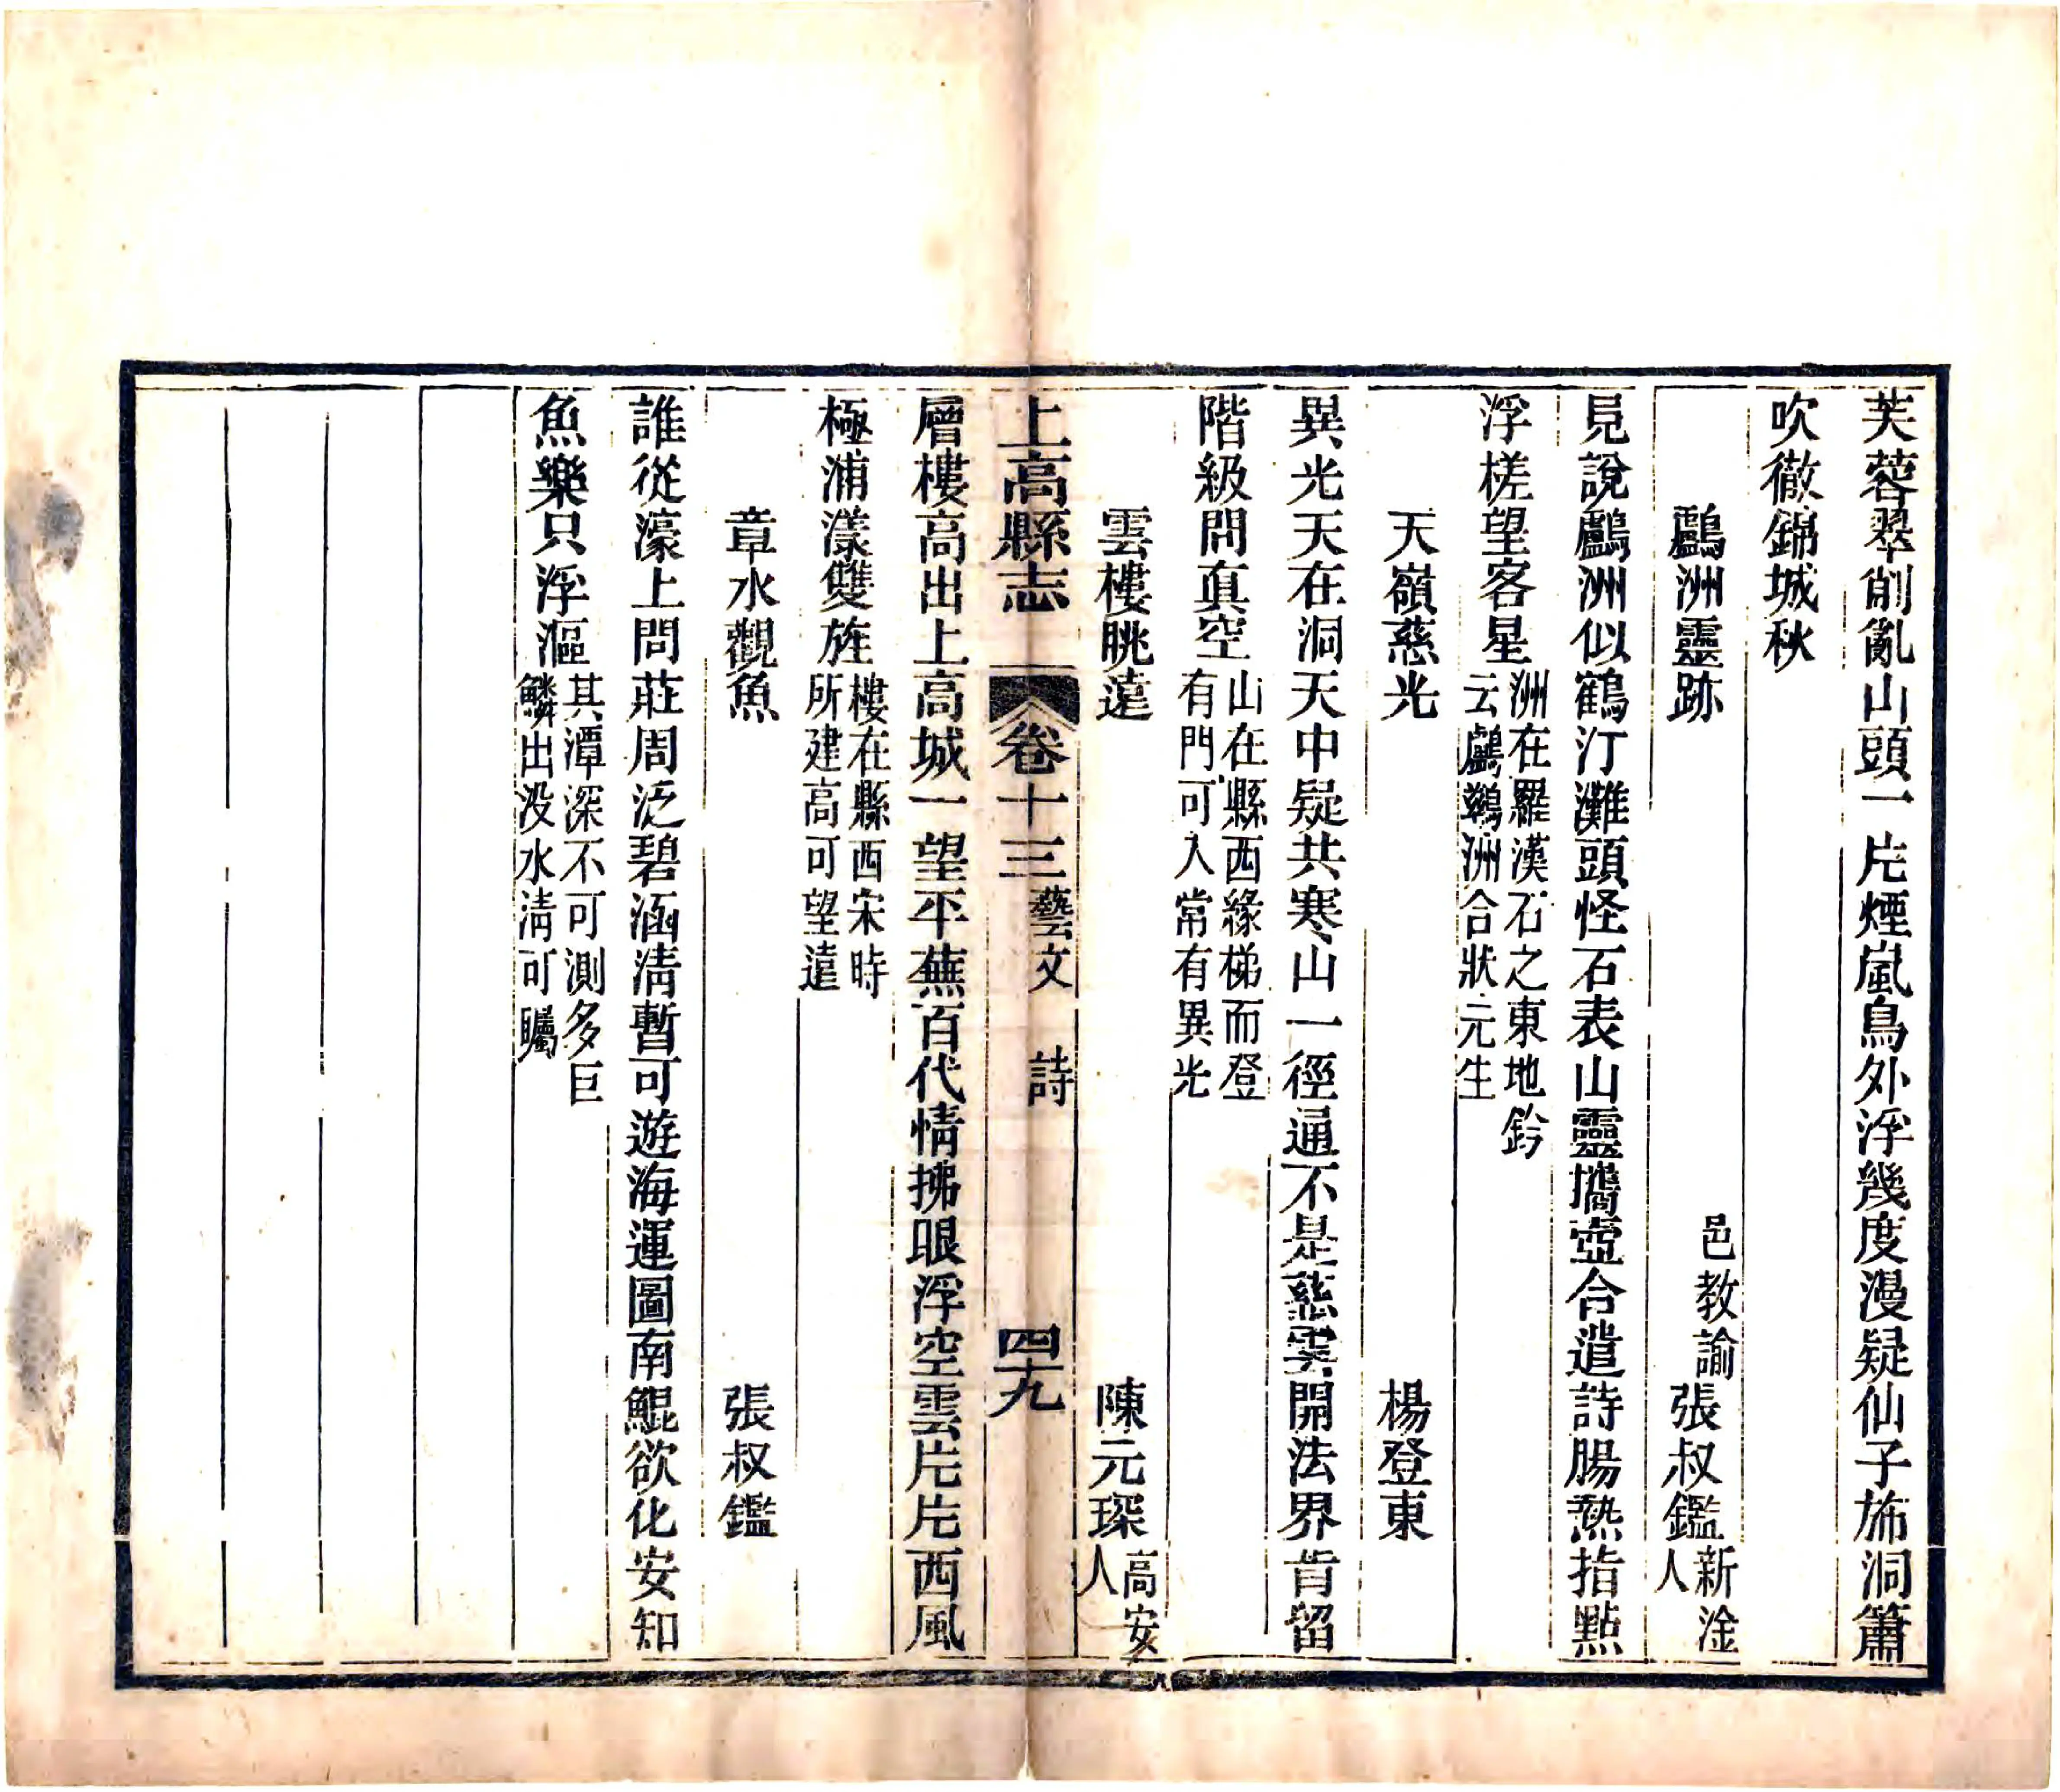 芙蓉翠削亂山頭一片煙嵐鳥外浮幾度漫疑仙子斾洞簫
吹徹錦城秋
鸕洲靈跡 邑教諭張叔鑑新淦人
見說鸕洲似鶴汀灘頭怪石表山靈攜壺合遣詩腸熱指點
浮槎望客星洲在羅漢石之東地鈐
云鸕鷀洲合狀元生
天嶺慈光 楊登東
異光天在洞天中疑共寒山一徑通不是慈雲開法界肯留
階級問眞空山在縣西緣梯而登
有門可入常有異光
雲樓眺遠 陳元琛高安人
上高縣志 卷十三 藝文 詩 四十九
層樓高出上高城一望平蕪百代情拂眼浮空雲片片西風
極浦漾雙旌樓在縣西宋時
所建高可望遠
章水觀魚 張叔鑑
誰從濠上問莊周泛碧涵清暫可遊海運圖南鯤欲化安知
魚樂只浮漚其潭深不可測多巨
鱗出没水清可矚